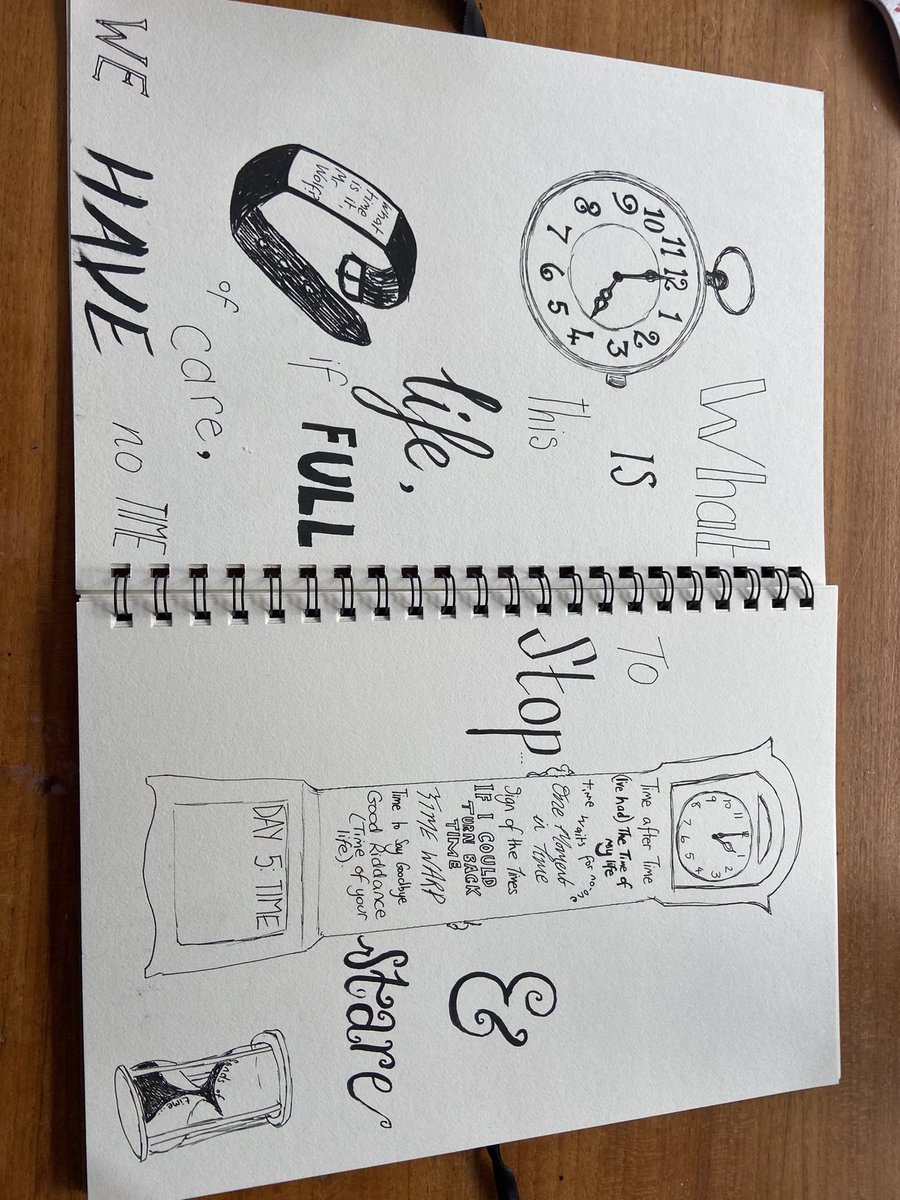 What
IS
this
life,
if FULL
of care,
WE HAVE no TIME
12
1
2
3
4
5
6
7
8
9
10
11
What
time
is it
Mr
Wolf?
To
Stop...
&
stare
12
1
2
3
4
5
6
7
8
9
10
11
Time after Time
(I've had) The Time of
my life
time waits for no one
One Moment
in Time
Sign of the Times
IF I COULD
TURN BACK
TIME
TIME WARP
Time to Say Goodbye
Good Riddance
(Time of your
life)
DAY 5: TIME
sands of
time...